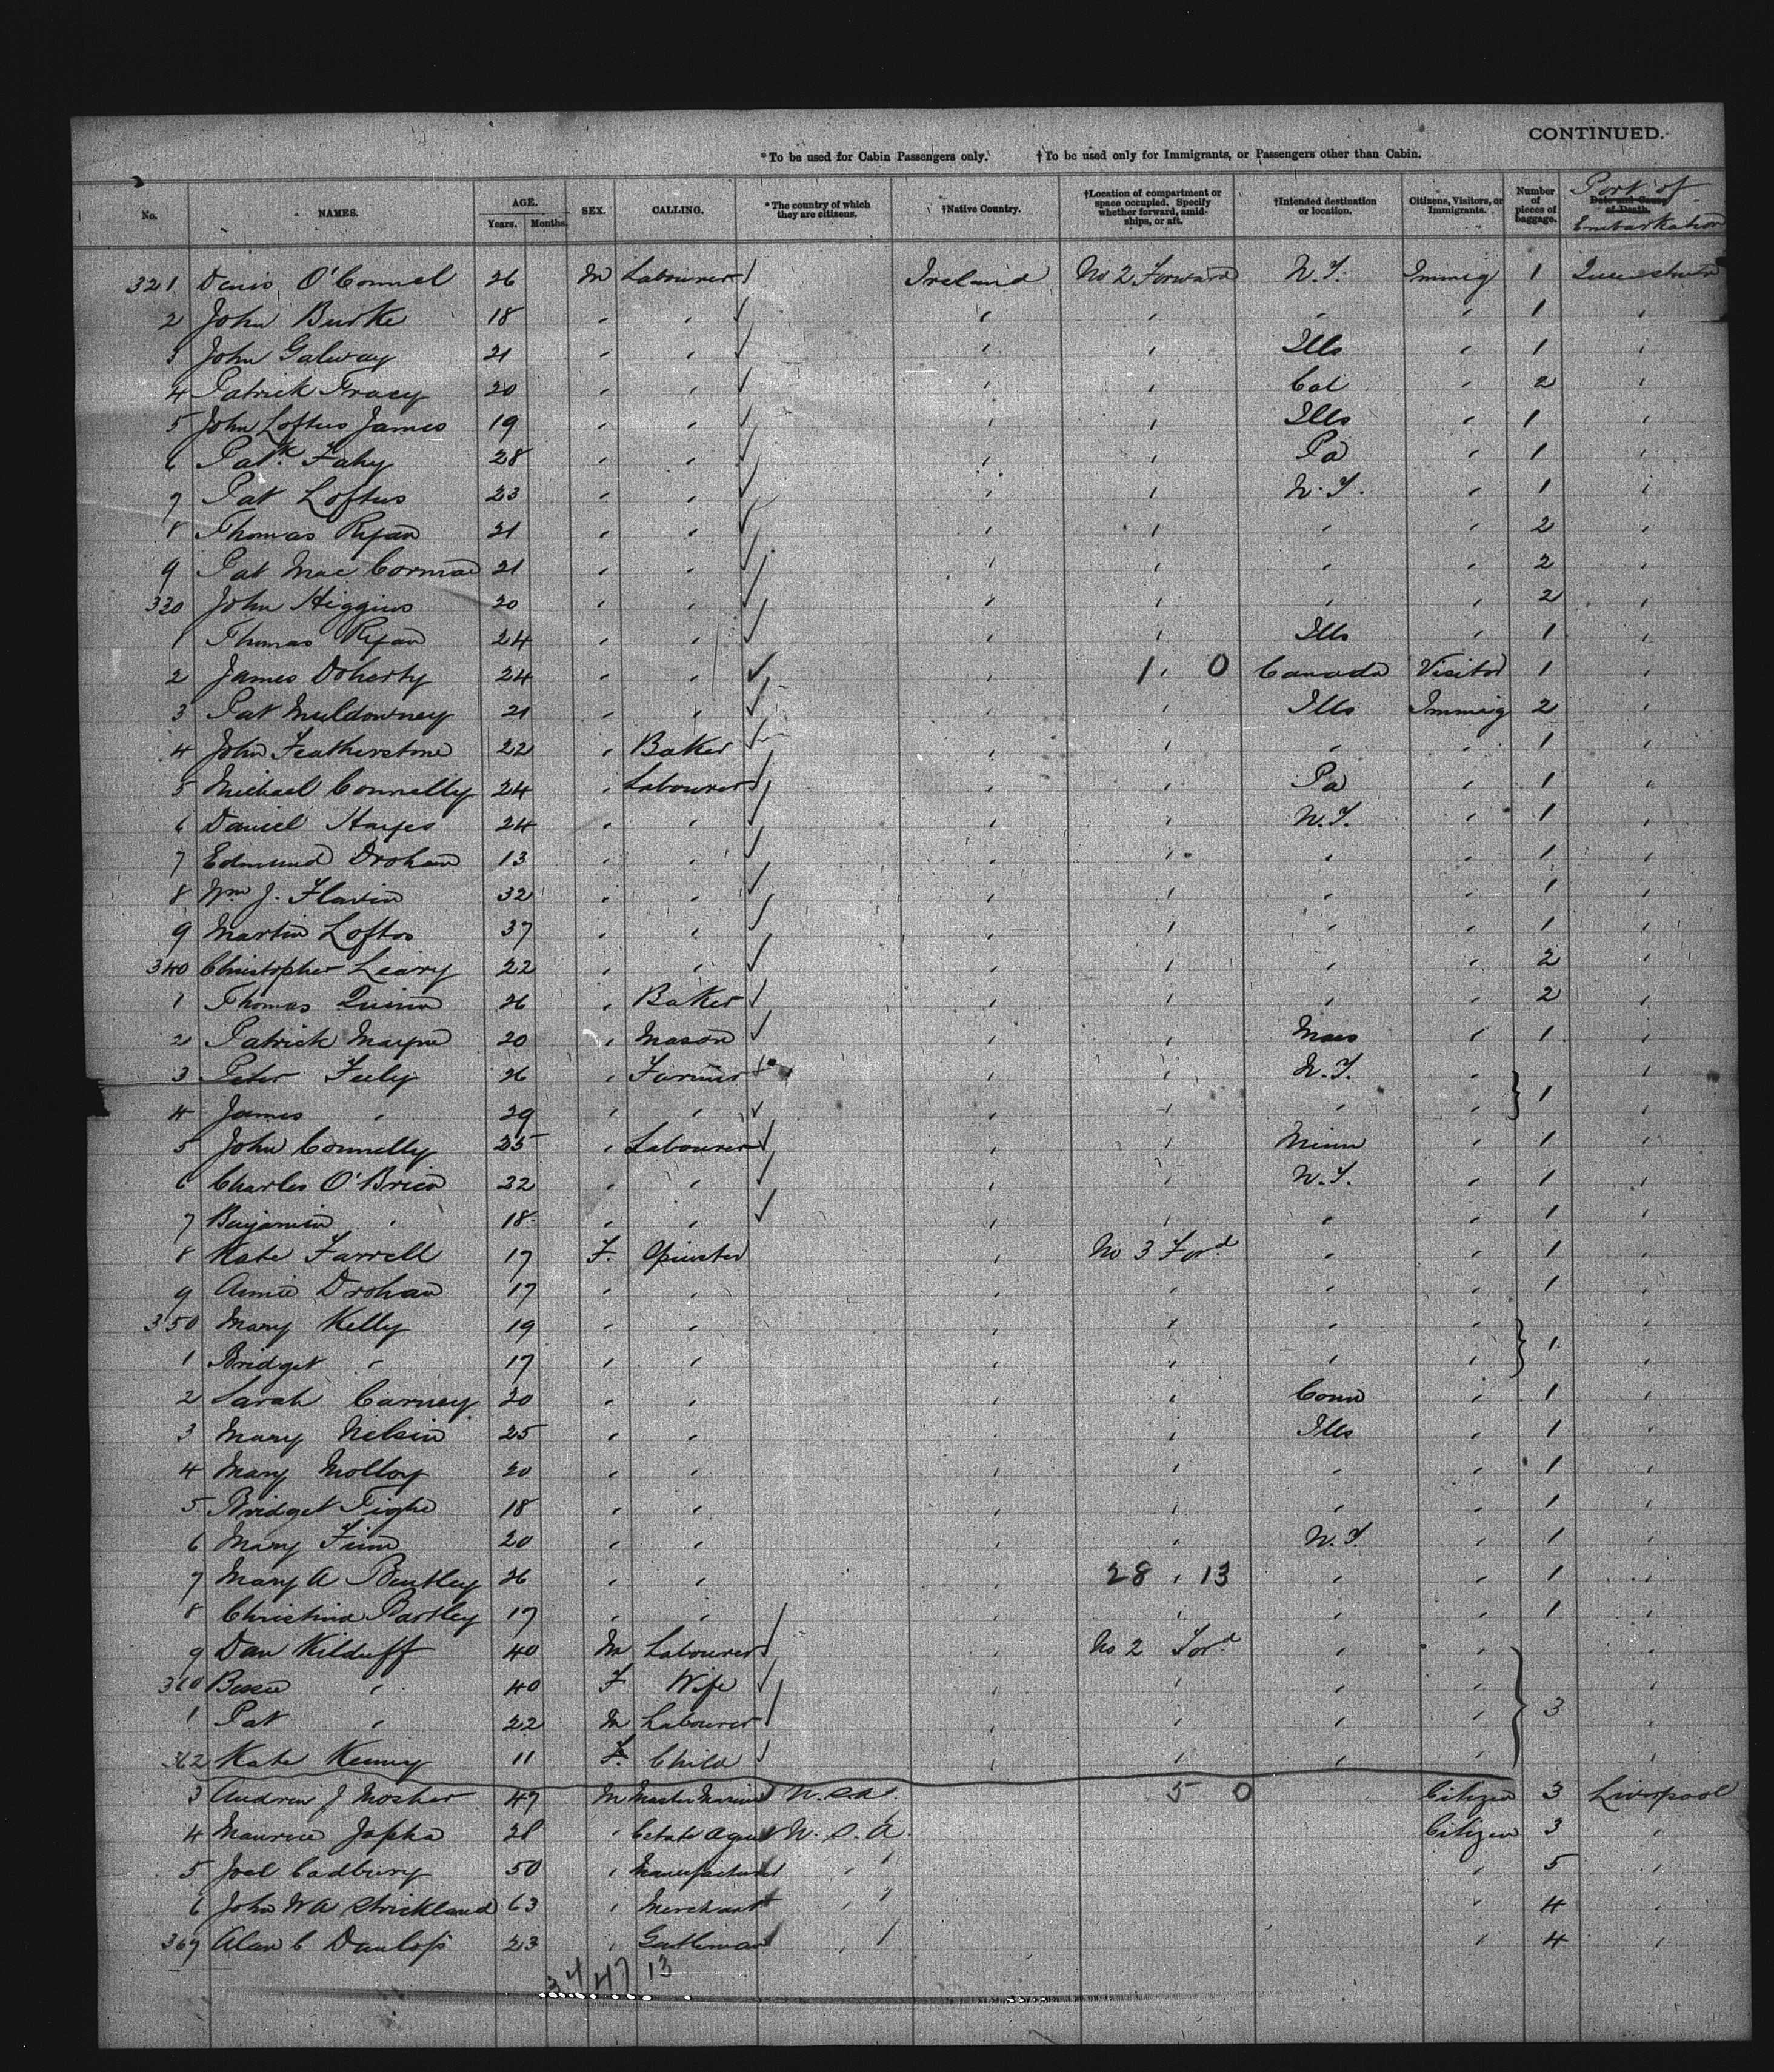 CONTINUED.
*To be used for Cabin Passengers only. †To be used only for Immigrants, or Passengers other than Cabin.
No. NAMES. AGE. Years. Months. SEX. CALLING. *The country of which they are citizens. †Native Country. †Location of compartment or space occupied. Specify whether forward, amidships, or aft. †Intended destination or location. Citizens, Visitors, or Immigrants. Number of pieces of baggage. Date and Cause of Death. Port of Embarkation
321 Denis O'Connel 26 M Labourer Ireland No 2 Forward N.Y. Immig 1 Queenstown
2 John Burke 18 " " " " " " 1 "
3 John Galway 21 " " " " Ills " 1 "
4 Patrick Tracy 20 " " " " Cal " 2 "
5 John Loftus James 19 " " " " Ills " 1 "
6 Patk. Fahy 28 " " " " Pa " 1 "
7 Pat Loftus 23 " " " " N.Y. " 1 "
8 Thomas Ryan 21 " " " " " " 2 "
9 Pat Mac Cormac 21 " " " " " " 2 "
330 John Higgins 20 " " " " " " 2 "
1 Thomas Ryan 24 " " " " Ills " 1 "
2 James Doherty 24 " " " 1 " 0 Canada Visitor 1 "
3 Pat Muldowney 21 " " " " Ills Immig 2 "
4 John Featherstone 22 " Baker " " " " 1 "
5 Michael Connelly 24 " Labourer " " Pa " 1 "
6 Daniel Hayes 24 " " " " N.Y. " 1 "
7 Edmund Drohan 13 " " " " " " 1 "
8 Wm J. Flavin 32 " " " " " " 1 "
9 Martin Loftus 37 " " " " " " 1 "
340 Christopher Leary 22 " " " " " " 2 "
1 Thomas Quinn 26 " Baker " " " " 2 "
2 Patrick Mayne 20 " Mason " " Mass " 1 "
3 Peter Feely 26 " Farmer " " N.Y. " "
4 James " 29 " " " " " " 1 "
5 John Connelly 25 " Labourer " " Minn " 1 "
6 Charles O'Brien 22 " " " " N.Y. " 1 "
7 Benjamin " 18 " " " " " " 1 "
8 Kate Farrell 17 F. Spinster " No 3 Ford " " 1 "
9 Annie Drohan 17 " " " " " " 1 "
350 Mary Kelly 19 " " " " " " "
1 Bridget " 17 " " " " " " 1 "
2 Sarah Carney 20 " " " " Conn " 1 "
3 Mary Nelsin 25 " " " " Ills " 1 "
4 Mary Molloy 20 " " " " " " 1 "
5 Bridget Tighe 18 " " " " " " 1 "
6 Mary Finn 20 " " " " N.Y. " 1 "
7 Mary A Bentley 26 " " " 28 " 13 " " 1 "
8 Christina Bartley 17 " " " " " " 1 "
9 Dan Kilduff 40 M Labourer " No 2 Ford " " "
360 Bessie " 40 F Wife " " " " "
1 Pat " 22 M Labourer " " " " 3 "
362 Kate Kenny 11 F. Child " " " " "
3 Andrew J Mosher 47 M Master Mariner U.S.A. 5 0 Citizen 3 Liverpool
4 Maurice Japha 28 " Estate Agent U.S.A. Citizen 3 "
5 Joel Cadbury 50 " Manufacturer " " " 5 "
6 John WA Strickland 63 " Merchant " " " 4 "
367 Alan C Dunlop 23 " Gentleman " " " 4 "
34/47 13